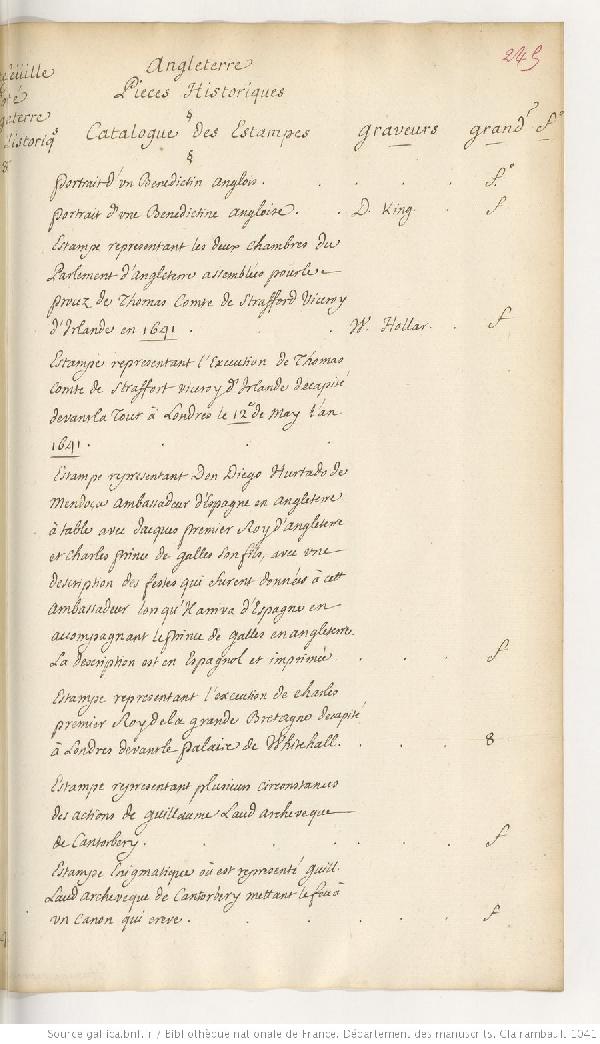 245
Angleterre
Pieces Historiques
§
Catalogue des Estampes graveurs grandr fo
§
portrait d'un Benedictin anglois. fo
portrait d'une Benedictine angloise. D. King. f
Estampe representant les deux chambres du
Parlement d'Angleterre assemblées pour le
procez de Thomas Comte de Strafford Viceroy
d'Irlande en 1641. W. Hollar. f
Estampe representant l'Execution de Thomas
comte de Straffort viceroy d'Irlande decapité
devant la Tour à Londres le 12e de May l'an
1641.
Estampe representant Don Diego Hurtado de
Mendoca ambassadeur d'Espagne en angleterre
à table avec Jacques premier Roy d'angleterre
et charles prince de galles son fils, avec une
description des festes qui furent données à cett
ambassadeur lorsqu'il arriva d'Espagne en
accompagnant le prince de galles en angleterre.
La description est en Espagnol et imprimée. f
Estampe representant l'execution de charles
premier Roy de la grande Bretagne decapité
à Londres devant le palais de Whitehall. 8
Estampe representant plusieurs circonstances
des actions de guillaume Laud archeveque
de Cantorbery. f
Estampe Enigmatique où est representé guill.
Laud archeveque de Cantorbery mettant le feu à
un canon qui creve. f
Source gallica.bnf.fr / Bibliothèque nationale de France. Département des manuscrits. Clairambault 1041